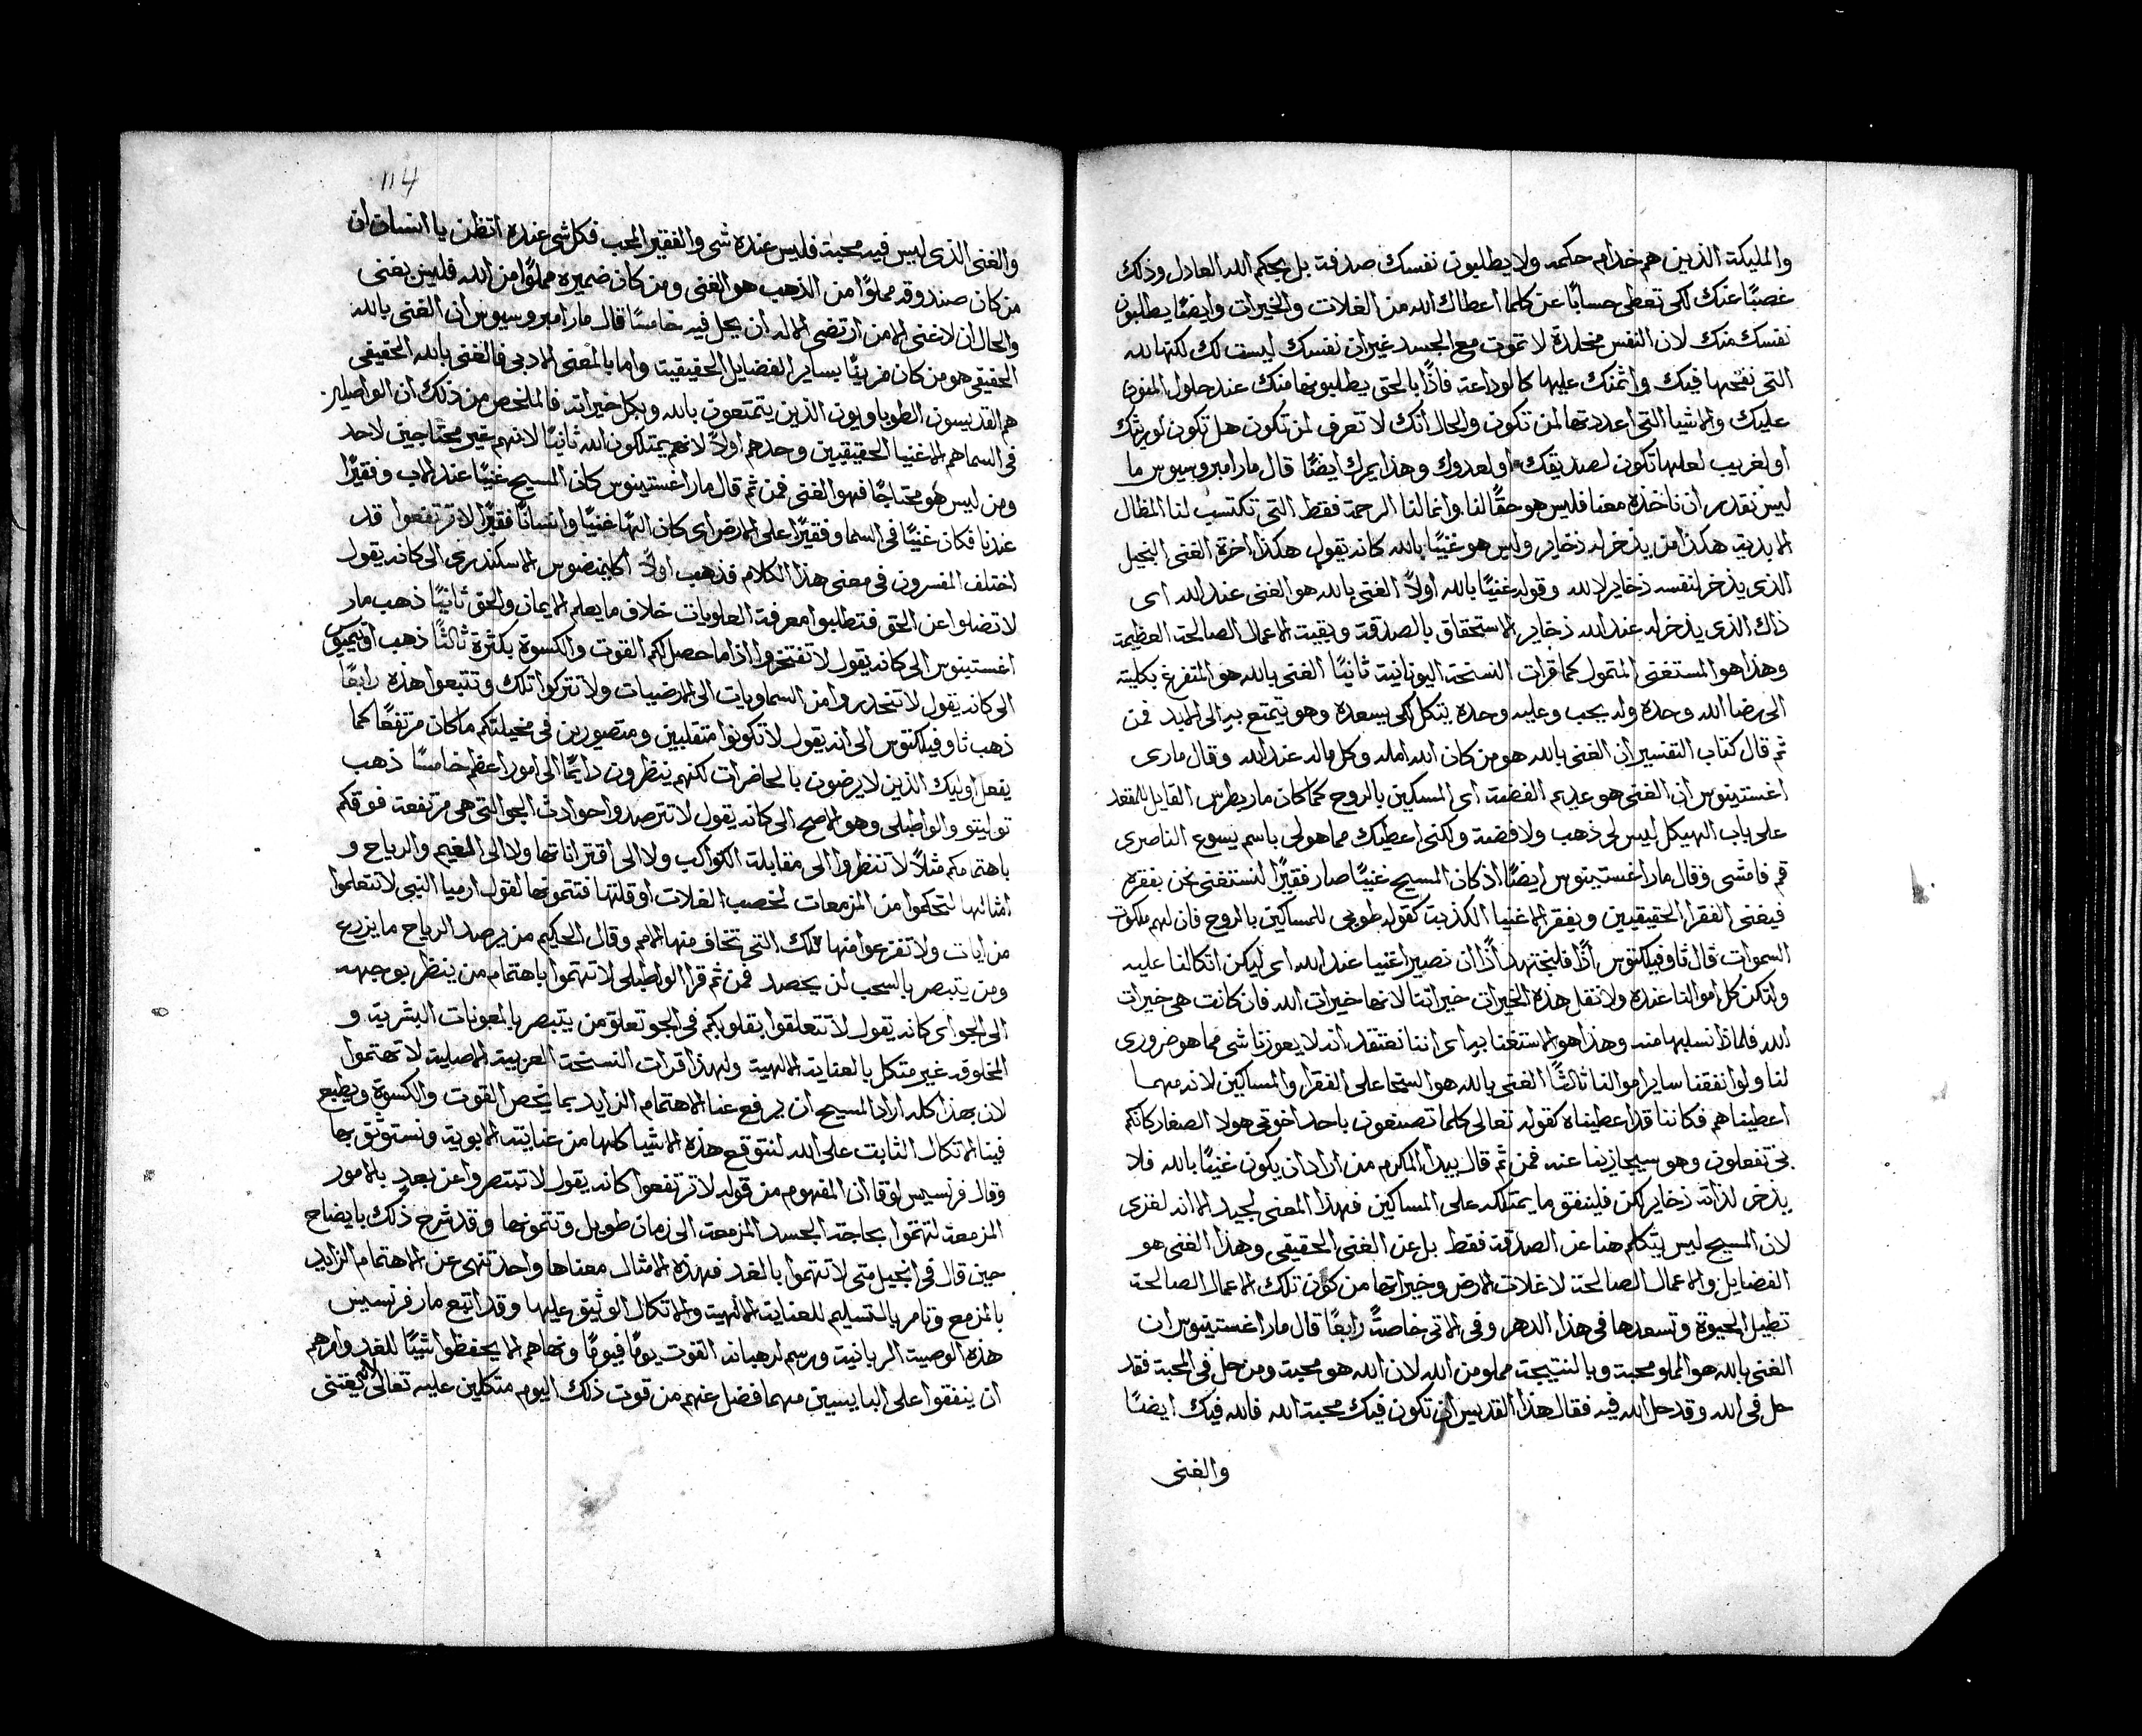 والمليكة الذين هم خدام حكمه ولا يطلبون نفسك صدفة بل بحكم الله العادل وذلك
غصبًا عنك لكى تعطى حسابًا عن كلما اعطاك الله من الغلات والخيرات وايضًا يطلبون
نفسك منك لان النفس مخلدة لا تموت مع الجسد غير ان نفسك ليست لك لكنها لله
التى نفخها فيك وائتمنك عليها كالوداعة فاذًا بالحق يطلبونها منك عند حلول المنون
عليك والاشيا التى اعددتها لمن تكون والحال انك لا تعرف لمن تكون هل تكون لوريثك
او لغريب لعلها تكون لصديقك او لعدوك وهذا يمرك ايضًا قال مار امبروسيوس ما
ليس نقدر ان ناخذه معنا فليس هو حقًا لنا وانما لنا الرحمة فقط التى تكتسب لنا المظال
الابدية هكذا من يذخر له ذخاير وليس هو غنيًا بالله كانه يقول هكذا اخرة الغنى البخيل
الذى يذخر لنفسه ذخاير لا لله وقوله غنيًا بالله اولاً الغنى بالله هو الغنى عند الله اى
ذاك الذى يذخر له عند الله ذخاير الاستحقاق بالصدقة وبقية الاعمال الصالحة العظيمة
وهذا هو المستغنى المتمول كما قرات النسخة اليونانية ثانيًا الغنى بالله هو المتفرغ بكليته
الى رضا الله وحده وله يحب وعليه وحده يتكل لكى يسعده وهو يتمتع به الى الابد فمن
ثم قال كتاب التفسير ان الغنى بالله هو من كان الله امله وكل ماله عند الله وقال مارى
اغستينوس ان الغنى هو عديم الفضة اى المسكين بالروح كما كان مار بطرس القايل للمقعد
على باب الهيكل ليس لى ذهب ولا فضة ولكنى اعطيك مما هو لى باسم يسوع الناصرى
قم فامشى وقال مار اغستينوس ايضًا اذ كان المسيح غنيًا صار فقيرًا لنستغنى نحن بفقره
فيغنى الفقرا الحقيقيين ويفقر الاغنيا الكذبة كقوله طوبى للمساكين بالروح فان لهم ملكوت
السموات قال ثاوفيلكتوس اذًا فلنجتهد اذًا ان نصير اغنيا عند الله اى ليكن اتكالنا عليه
ولتكن كل اموالنا عنده ولا نقل هذه الخيرات خيراتنا لانها خيرات الله فان كانت هى خيرات
الله فلماذا نسلبها منه وهذا هو الاستغنا به اى اننا نعتقد انه لا يعوزنا شى مما هو ضرورى
لنا ولو انفقنا ساير اموالنا ثالثًا الغنى بالله هو السخا على الفقرا والمساكين لانه مهما
اعطيناهم فكاننا قد اعطيناه كقوله تعالى كلما تصنعون باحد اخوتى هولا الصغار كانكم
بى تفعلون وهو سيجازينا عنه فمن ثم قال بيدا المكرم من اراد ان يكون غنيًا بالله فلا
يذخر لذاته ذخاير لكن فلينفق ما يمتلكه على المساكين فهذا المعنى لجيد الا انه لغزى
لان المسيح ليس يتكلم هنا عن الصدقة فقط بل عن الغنى الحقيقى وهذا الغنى هو
الفضايل والاعمال الصالحة لا غلات الارض وخيراتها من كون تلك الاعمال الصالحة
تطيل الحيوة وتسعدها فى هذا الدهر وفى الاتى خاصةً رابعًا قال مار اغستينوس ان
الغنى بالله هو المملو محبة وبالنتيجة مملو من الله لان الله هو محبة ومن حل فى المحبة فقد
حل فى الله وقد حل الله فيه فقال هذا القديس ان تكون فيك محبة الله فالله فيك ايضًا
والغنى
114
والغنى الذى ليس فيه محبة فليس عنده شى والفقير المحب فكل شى عنده اتظن يا انسان ان
من كان صندوقه مملوًا من الذهب هو الغنى ومن كان ضميره مملوًا من الله فليس بغنى
والحال ان لا غنى الا من ارتضى الاله ان يحل فيه خامسًا قال مار امبروسيوس ان الغنى بالله
الحقيقى هو من كان مزينًا بساير الفضايل الحقيقية واما بالمعنى الادبى فالغنى بالله الحقيقى
هم القديسون الطوباويون الذين يتمتعون بالله وبكل خيراته فالملخص من ذلك ان الواصلين
فى السما هم الاغنيا الحقيقيين وحدهم اولاً لانهم يمتلكون الله ثانيًا لانهم غير محتاجين لاحد
ومن ليس هو محتاجًا فهو الغنى فمن ثم قال مار اغستينوس كان المسيح غنيًا عند الاب وفقيرًا
عندنا فكان غنيًا فى السما وفقيرًا على الارض اى كان الهًا غنيًا وانسانًا فقيرًا لا ترتفعوا قد
اختلف المفسرون فى معنى هذا الكلام فذهب اولاً اكليمنضوس الاسكندرى الى كانه يقول
لا تضلوا عن الحق فتطلبوا معرفة العلويات خلاف ما يعلم الايمان والحق ثانيًا ذهب مار
اغستينوس الى كانه يقول لا تفتخروا اذا ما حصل لكم القوت والكسوة بكثرة ثالثًا ذهب
الى كانه يقول لا تنحدروا من السماويات الى الارضيات ولا تتركوا تلك وتتبعوا هذه رابعًا
ذهب ثاوفيلكتوس الى انه يقول لا تكونوا متقلبين ومتصورين فى مخيلتكم ما كان مرتفعًا كما
يفعل اوليك الذين لا يرضون بالحاضرات لكنهم ينظرون دايمًا الى امور اعظم خامسًا ذهب
توليتو والواطبلى وهو الاصح الى كانه يقول لا تترصدوا حوادث الجو التى هى مرتفعة فوقكم
باهتمامكم مثلاً لا تنظروا الى مقابلة الكواكب ولا الى اقتراناتها ولا الى الغيم والرياح و
امثالها لتحكموا من المزمعات لخصب الغلات او قلتها فتتمونها لقول ارميا النبى لا تتعلموا
من ايات ولا تفزعوا منها تلك التى تخاف منها الامم وقال الحكيم من يرصد الرياح ما يزرع
ومن يتبصر بالسحب لن يحصد فمن ثم قرا الواطبلى لا تهتموا باهتمام من ينظر بوجهه
الى الجو اى كانه يقول لا تتعلقوا بقلوبكم فى الجو تعلق من يتبصر بالمعونات البشرية و
المخلوقة غير متكل بالعناية الالهية ولهذا قرات النسخة العربية الاصلية لا تهتموا
لان بهذا كله اراد المسيح ان يرفع عنا الاهتمام الزايد بما يخص القوت والكسوة ويطبع
فينا الاتكال الثابت على الله لنتوقع هذه الاشيا كلها من عنايته الابوية ونستوثق بها
وقال فرنسيس لوقا ان المفهوم من قوله لا ترتفعوا كانه يقول لا تنتصروا عن بعد بالامور
المزمعة لتهتموا بحاجة الجسد المزمعة الى زمان طويل وتتمونها وقد شرح ذلك بايضاح
حين قال فى انجيل متى لا تهتموا بالغد فهذه الامثال معناها واحد تنهى عن الاهتمام الزايد
بالمزمع وتامر بالتسليم للعناية الالهية والاتكال الوثيق عليها وقد اتبع مار فرنسيس
هذه الوصية الربانية ورسم لرهبانه القوت يومًا فيومًا ونهاهم الا يحفظوا شيئًا للغد وامرهم
ان ينفقوا على البايسين مهما فضل عنهم من قوت ذلك اليوم متكلين عليه تعالى لانه يعتنى